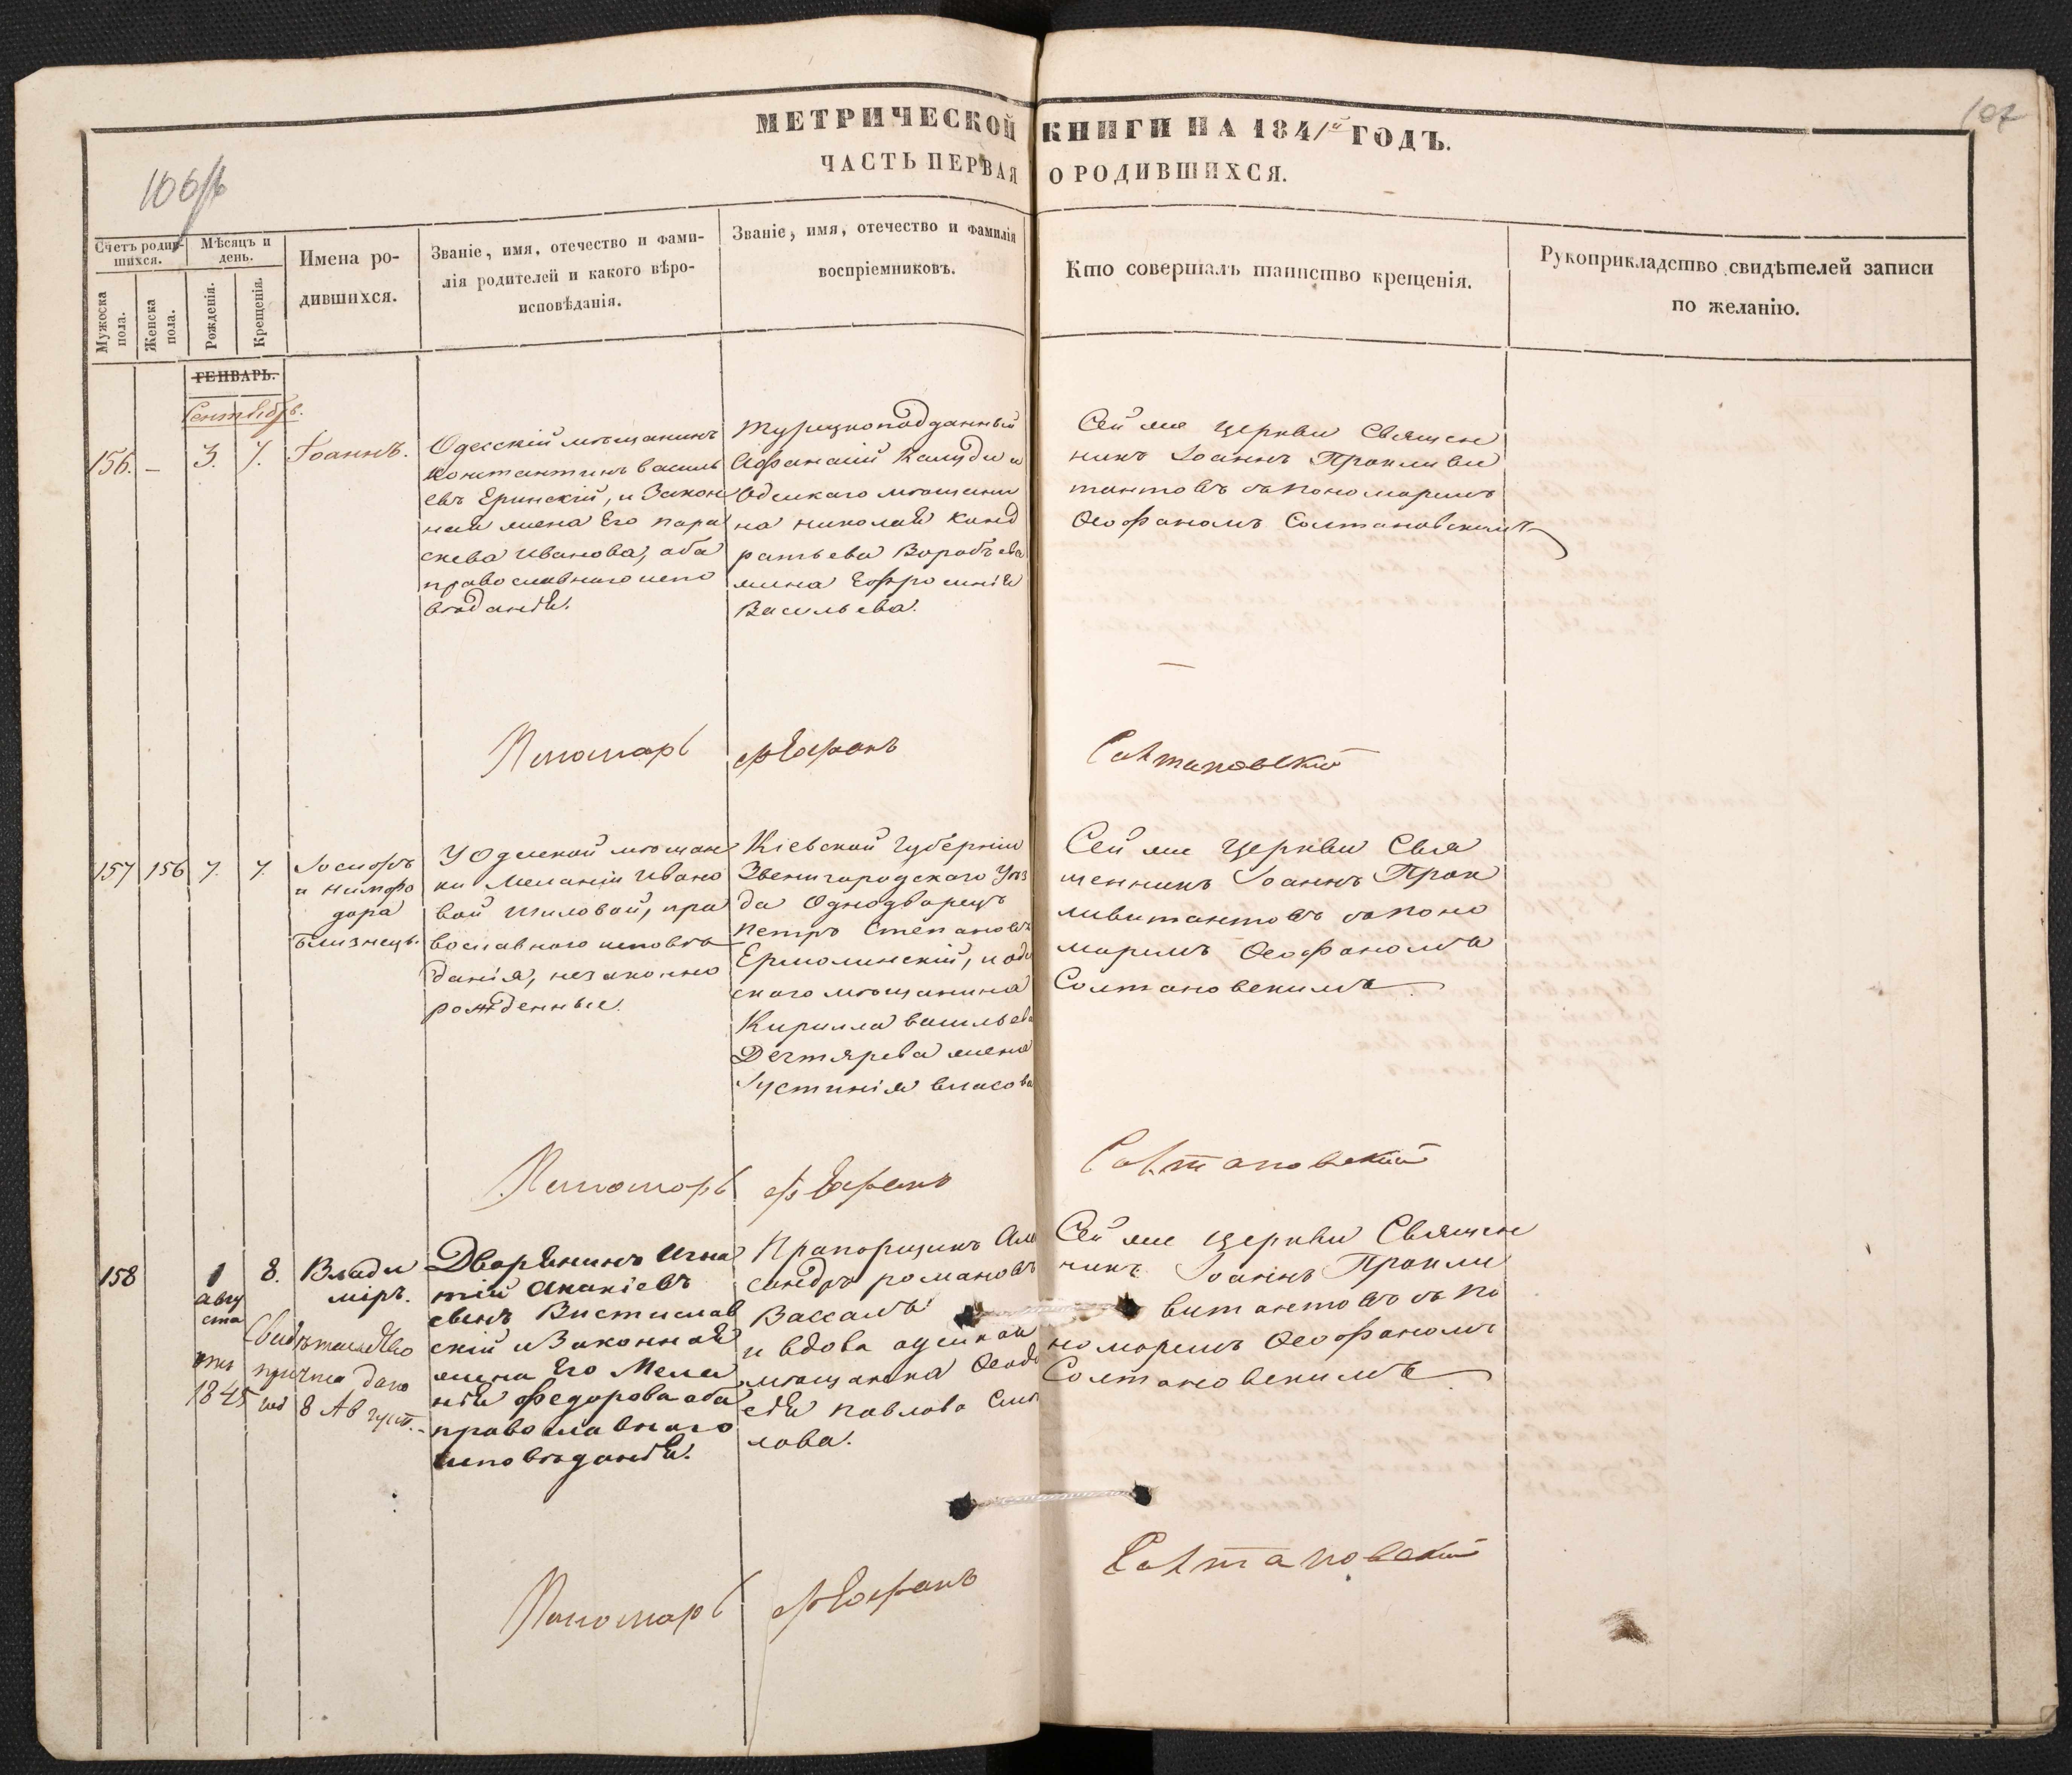 МЕТРИЧЕСКОЙ КНИГИ НА 1841й ГОДЪ.
ЧАСТЬ ПЕРВАЯ О РОДИВШИХСЯ.
107
Счетъ родив-
шихся.
Мужеска пола.
Женска пола.
Мѣсяцъ и
день.
Рожденія.
Крещенія.
Имена ро-
дившихся.
Званіе, имя, отечество и фами-
лія родителей и какого вѣро-
исповѣданія.
Званіе, имя, отечество и фамилія
воспріемниковъ.
Кто совершалъ таинство крещенія.
Рукоприкладство свидѣтелей записи
по желанію.
ГЕНВАРЬ.
Сентябрь.
156. — 3. 7.
Іоаннъ.
Одесскій мѣщанинъ
Константинъ Василь
евъ Еринскій, и Закон
ная жена Его Пара
скева Иванова, оба
православнаго испо
вѣданія.
Турецкоподданный
Афанасій Калуди и
Одесскаго мѣщани
на Николая Кинд
ратьева Воробьева
жена Ефросинія
Васильева.
Сей же церкви Священ
никъ Іоаннъ Прокливи
тантовъ съ пономаремъ
Ѳеофаномъ Солтановскимъ
Пономарь Ѳеофанъ Солтановскій
157 156 7. 7.
Іосифъ
и Нимфо
дора
близнецы.
У Одесской мѣщан
ки Меланіи Ивано
вой Шиловой, пра
вославного исповѣ
данія, незаконно
рожденные.
Кіевской Губерніи
Звенигородскаго Уѣз
да Однодворецъ
Петръ Степановъ
Ермолинскій, и оде
скаго мѣщанина
Кирилла Васильева
Дегтярева жена
Іустинія Власова
Сей же церкви Свя
щенникъ Іоаннъ Прок
ливитантовъ съ поно
маремъ Ѳеофаномъ
Солтановскимъ
Пономарь Ѳеофанъ Солтановскій
158 1 8.
авгу
ста
Влади
міръ.
Свидѣтельство
причта дано
1845 год 8 Август.
Дворянинъ Игна
тій Акакіевъ
сынъ Вистислав
скій и Законная
жена Его Мела
нія Федорова оба
православнаго
исповѣданія.
Прапорщикъ Але
сандръ Романовъ
Вассалъ
и вдова одесская
мѣщанка Ѳеодо
сія Павлова Смы
лова.
Сей же церкви Священ
никъ Іоаннъ Прокли
витантовъ съ по
номаремъ Ѳеофаномъ
Солтановскимъ
Пономарь Ѳеофанъ Солтановскій